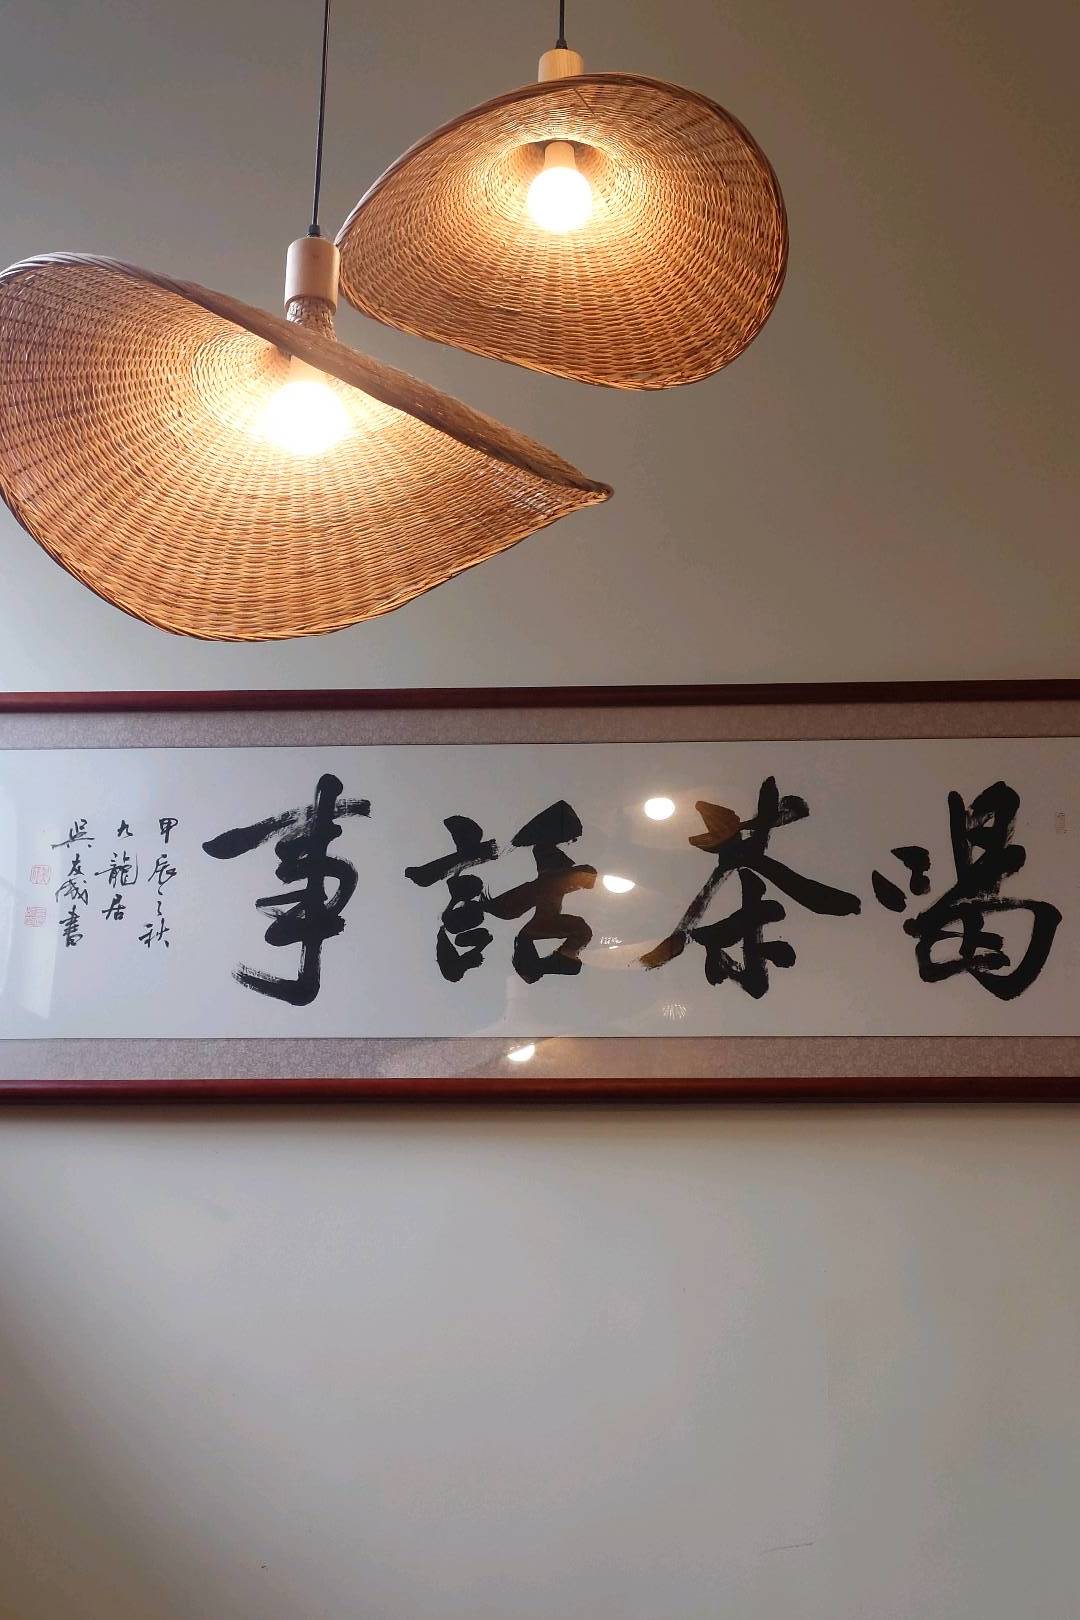 喝茶話事
甲辰之秋
九龍居
吳友盛書